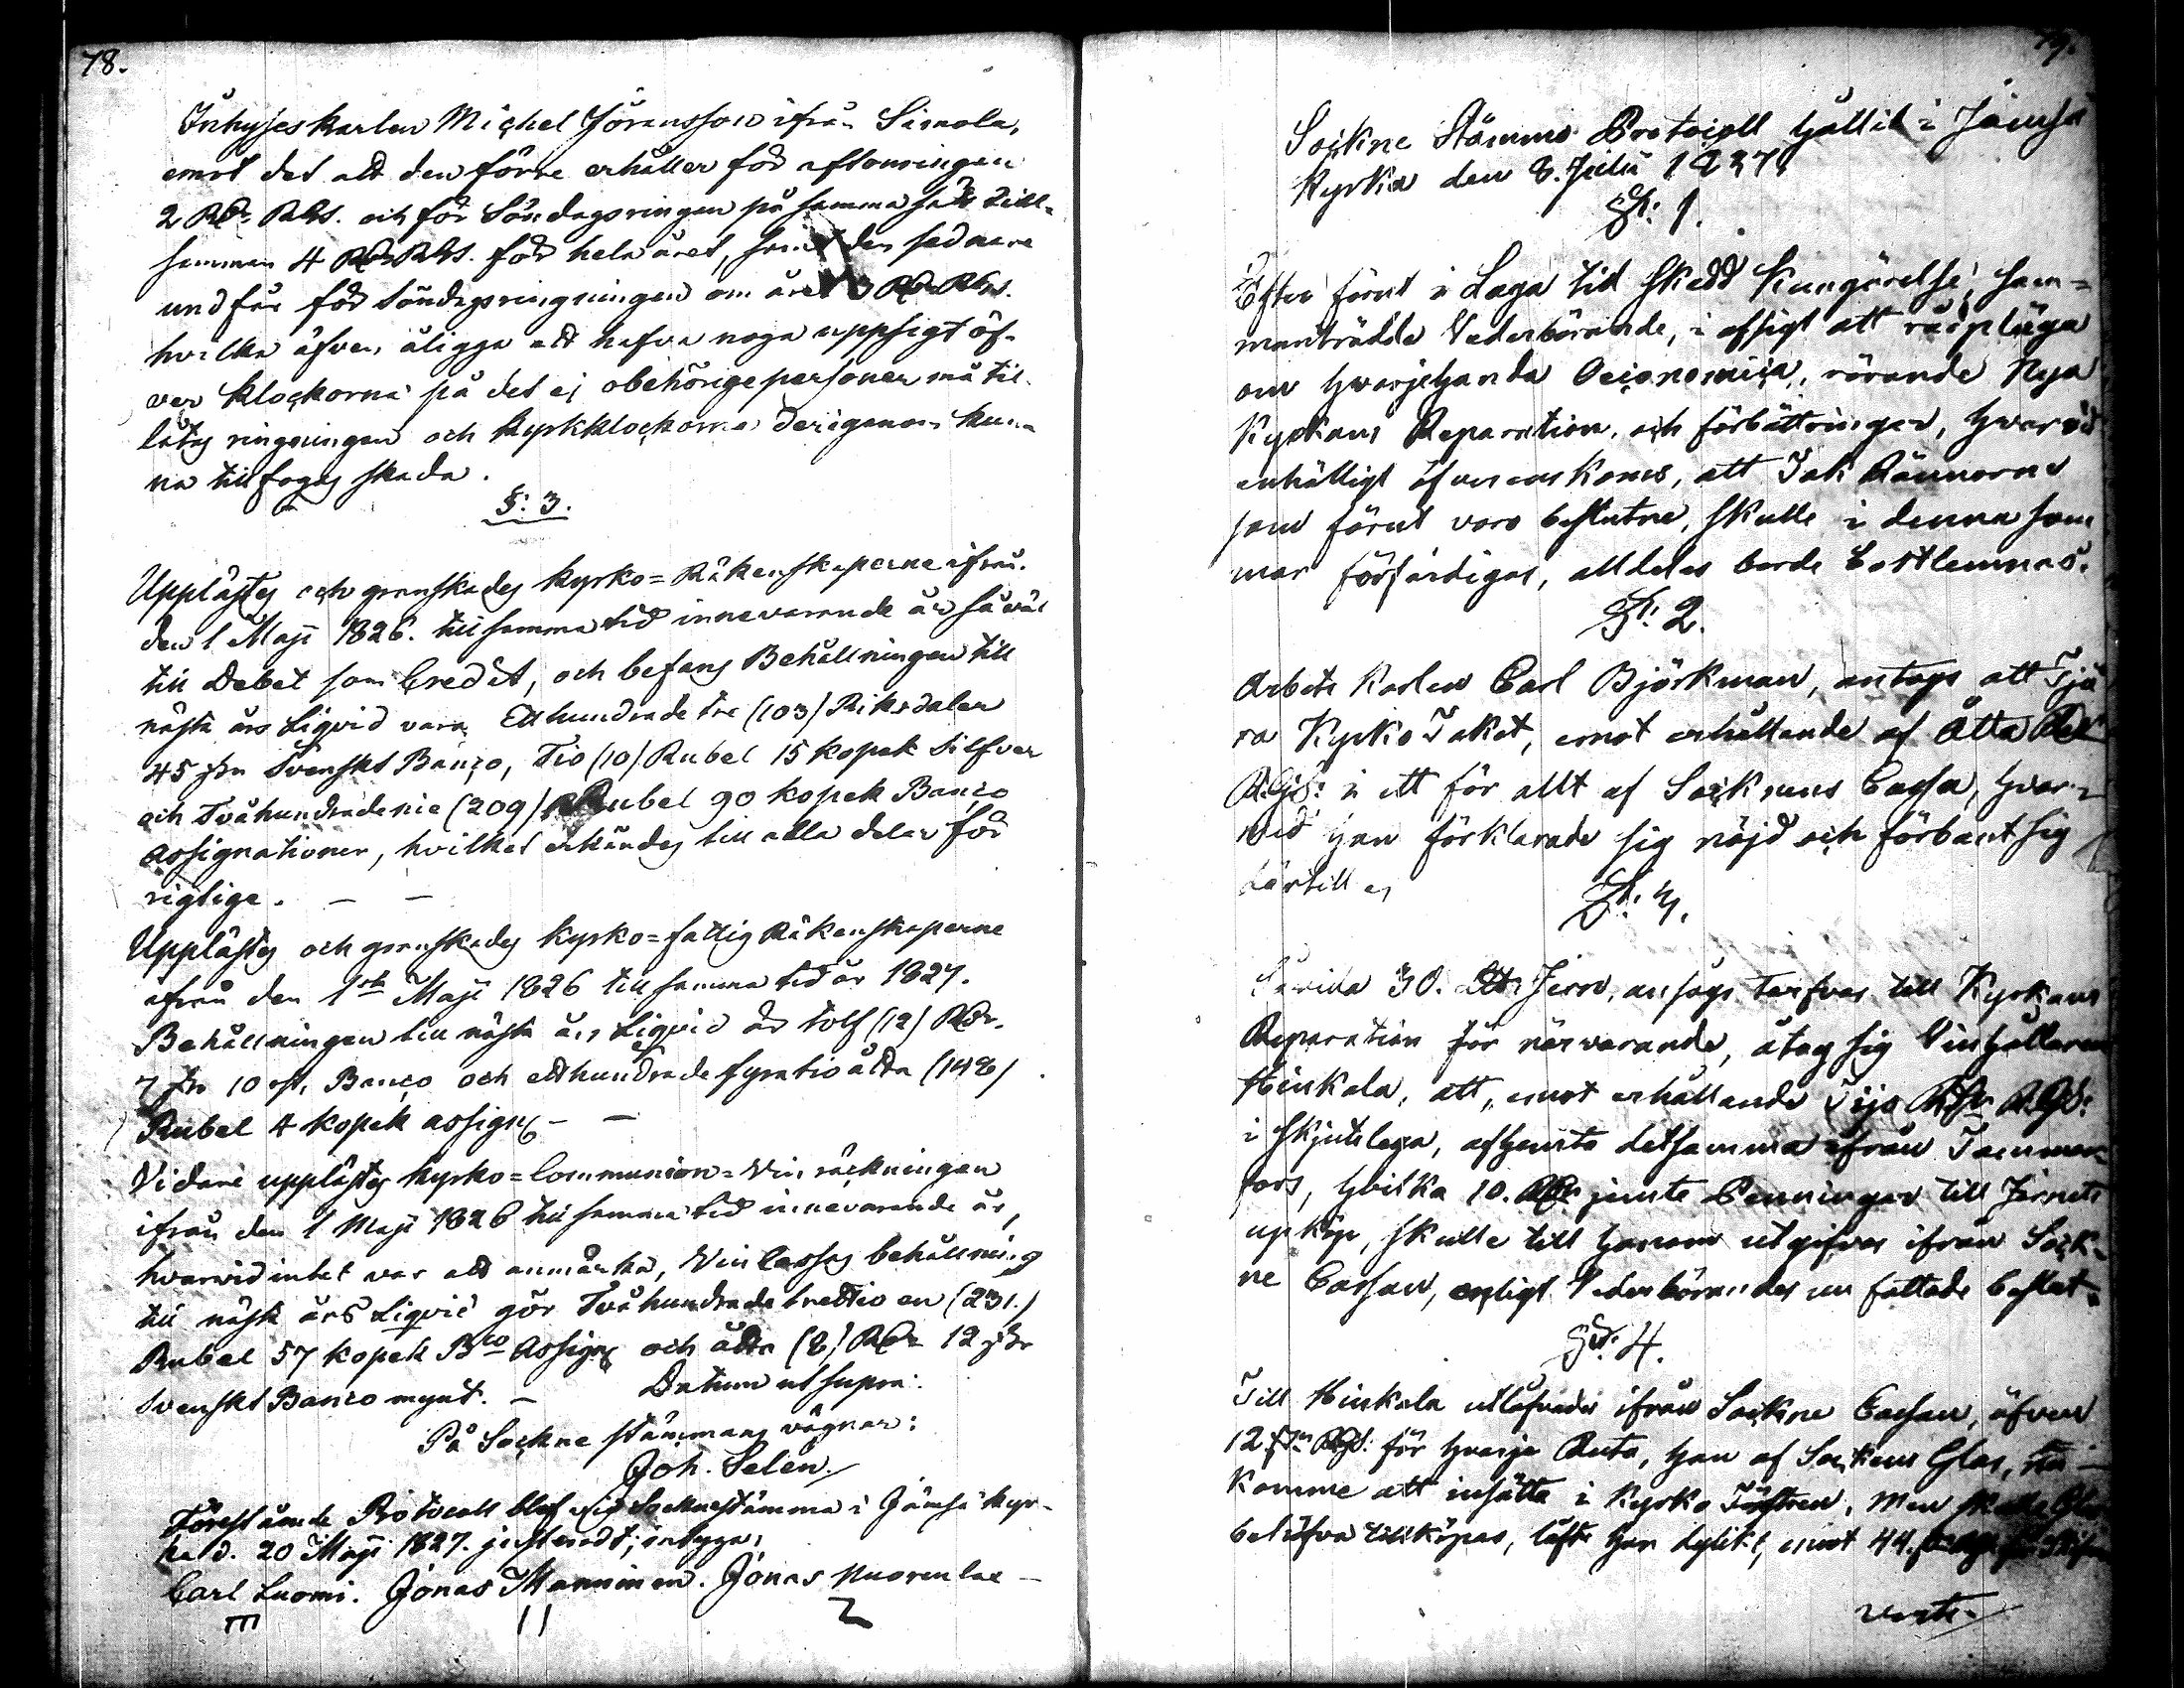 78.
Inhyseskarlen Michel Jöransson ifrån Simola,
emot det att den förre erhåller för aftonringen
2 RDr RGs. och för Söndagsringen på samma sätt till-
samman 4 RDr RGs. för hela året, den sednare
undfår för söndagsringningen om året 3 RDr RGs.
hvilka äfven åligga att hafva noga uppsigt öf-
ver klockorna på det ej obehörige personer må til-
låtas ringningen och kyrkklockorna derigenom kun-
na tillfogas skada.
§: 3.
Upplästes och granskades kyrko=Räkenskaperne ifrån
den 1 Maji 1826. till samma tid innevarande år så väl
till Debet som Credit, och befans Behållningen till
nästa års Liqvid vara Etthundrade tre (103) Riksdaler
45 sk. Svenskt Banco, Tio (10) Rubel 15 kopek Silfver
och Tvåhundrade nie (209) Rubel 90 kopek Banco
Assignationer, hvilket erkändes till alla delar för
rigtige. — —
Upplästes och granskades kyrko=fattig Räkenskaperne
ifrån den 1sta Maji 1826 till samma tid år 1827.
Behållningen till nästa års Liqvid är tolf (12) RDr.
7 sk 10 rst. Banco och etthundrade fyratio åtta (148)
Rubel 4 kopek assign. — —
Vidare upplästes kyrko=Communion=Vin räckningen
ifrån den 1 Maji 1826 till samma tid innevarande år,
hvarvid intet var att anmärka, Vin Cassas behållning
till nästa års Liqvid gör Tvåhundrade trettio en (231.)
Rubel 57 kopek Bco Assign och åtta (8) RDr 12 sk
Svenskt Banco mynt. — Datum ut supra.
På Sockne stämmans vägnar:
Joh. Selén.
Förestående Protocoll blef vid Sockne stämma i Jämsä kyr-
ka d. 20 Maji 1827. justeradt; intyga,
Carl Luomi. Jonas Manninen. Jonas Nuorenlae —
79.
Sockne Stämmo Protocoll hållit i Jämsä
Kyrka den 8. Julii 1827.
§: 1.
Efter förut i Laga tid skedd Kungörelse, sam=
manträdde Vederbörande, i afsigt att rådpläga
om hwarjehanda Oeconomica, rörande Nya
Kyrkans Reparation, och förbättringar, hwarvid
enhälligt öfverenskoms, att Tak Rännorne
som förut voro beslutne, skulle i denna som
mar förfärdigas, alldeles borde bortlemnas.
§: 2.
Arbets Karlen Carl Björkman, antogs att Tjä
ra Kyrko Taket, emot erhållande af Åtta RDr
RGs: i ett för allt af Socknens Cassa, hvar-
med han förklarade sig nöjd och förbant sig
därtill
§: 3.
30. Jern, ansågs tarfvas till Kyrkans
Reparation för närvarande, åtog sig
Hinkala, att, emot erhållande Tijo RDr RGs:
i skjutslega, afhemta detsamma ifrån Tammer-
fors, hvilka 10. RDr jemte Penningar till Jernets
upköp, skulle till honom utgifvas ifrån Sock-
ne Cassan, enligt Vederbörandes nu fattade beslut.
§: 4.
Till Hinkala utlofvades ifrån Sockne Cassan, äfven
12 sk RGs: för hvarje Ruta, han af Socknens Glas,
komme att insätta i Kyrko Fönstren, Men skulle Glas
behöfva tillköpas, lofte han dylikt, emot 44.
verte